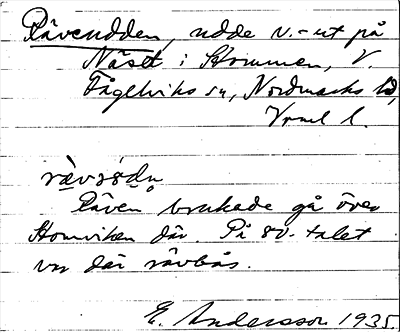 Rävendden, udde v.-ut på
Näset i Stommen, V.
Fågelviks sn, Nordmarks hd,
Vrml l.
rävs
Räven brukade gå över
Stomviken där. På 80-talet
var där rävbås.
E. Andersson 1935.